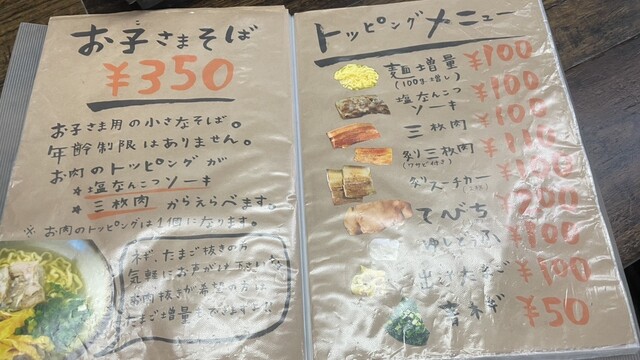 お子さまそば
¥350
お子さま用の小さなそば。
年齢制限はありません。
お肉のトッピングが
★塩なんこつソーキ
★三枚肉 からえらべます。
※お肉のトッピングは1個になります。
ネギ、たまご抜きの方
気軽にお声がけ下さいな
お肉抜きが希望の方は
たまご増量できますよ!!
トッピングメニュー
麺増量 ¥100
(100g増し)
塩なんこつ ¥100
ソーキ
三枚肉 ¥100
炙り三枚肉
(ワサビ付き)
炙りスーチカー
てびち
ゆしどうふ ¥100
¥100
青ネギ ¥50